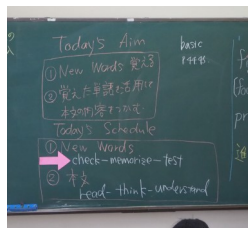 Today's Aim
① New Words 覚える
② 覚えた単語を活用して
本文の内容をつかむ.
Today's Schedule
① New Words
check-memorize-test
② 本文
read-think-understand
basic
P.44.45